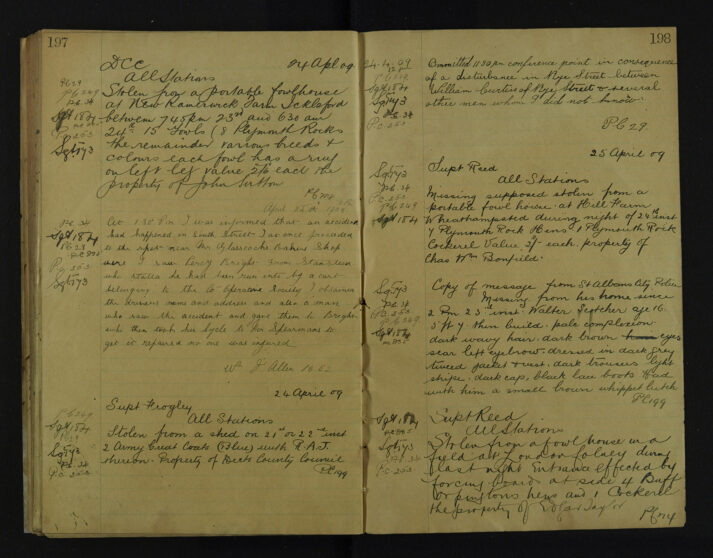 197
DCC 24 Apl 09
All Stations
Stolen from a portable fowlhouse
at New Farm
between 7 45 pm 23rd and 6 30 am
24th 15 Fowls (8 Plymouth Rocks
the remainder various breeds &
colours each fowl has a ring
on left leg value 2/6 each the
property of John Sutton
April 1909
At 1.30 Pm I was informed that an accident
had happened in South Street I at once proceeded
to the spot near Mr Glasscocks Bakers Shop
were I saw Percy Bright from
who states he had been run into by a cart
belonging to the Co Operative Society I obtained
the drivers name and address and also a man
who saw the accident and gave them to Bright
who then took his Cycle to Mr Spearmans to
get it repaired no one was injured
Wm J Allen
24 April 09
Supt Frogley
All Stations
Stolen from a shed on 21st or 22nd inst
2 Army Great Coats (Blue) with
thereon. Property of Herts County Council
PC 199
PC 29
PC 249
PC 34
Sgt 18
PC 253
Sgt 3
PC 34
Sgt 18
PC 29
PC 253
Sgt 3
PC 249
Sgt 18
Sgt 3
PC 34
PC 253
198
24.4.09
Committed 11.30 pm conference point in consequence
of a disturbance in Rye Street between
William Curtis of Rye Street & several
other men whom I did not know.
PC 29.
25 April 09
Supt Reed
All Stations
Missing supposed stolen from a
portable fowl house at Hill Farm
Wheathampsted during night of 24th inst
7 Plymouth Rock Hens 1 Plymouth Rock
Cockerel Value each. property of
Chas Wm Bonfield.
Copy of message from St Albans City Police
Missing from his home since
2 Pm 23rd inst Walter age 16.
5 ft 7 thin build. pale complexion
dark wavy hair. dark brown eyes
scar left eyebrow. dressed in dark grey
tweed jacket & vest. dark trousers light
stripe. dark cap, black lace boots. Had
with him a small brown whippet bitch
PC 199
Supt Reed
All Stations
Stolen from a fowl house in a
field at London Colney during
last night Entrance effected by
forcing board at side 4 Buff
orpingtons hens and 1 Cockerel
the property of Edgar Taylor
Sgt 18
Sgt 3
PC 34
Sgt 3
PC 34
PC 253
PC 249
Sgt 18
Sgt 3
PC 34
PC 253
PC 249
Sgt 18
Sgt 18
Sgt 3
PC 34
PC 253